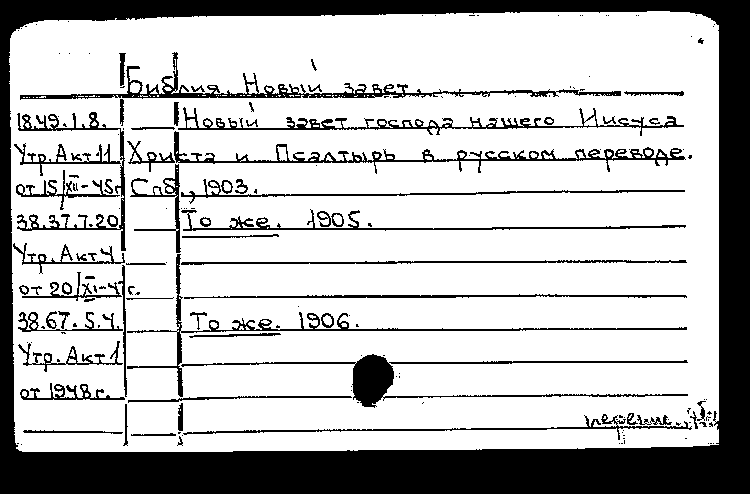 Библия. Новый завет.
18.49.1.8. Новый завет господа нашего Иисуса
Утр. Акт 11 Христа и Псалтырь в русском переводе.
от 15/XII-45г Спб., 1903.
38.37.7.20. То же. 1905.
Утр. Акт 4
от 20/XI-47г.
38.67.5.4. То же. 1906.
Утр. Акт 1
от 1948г.